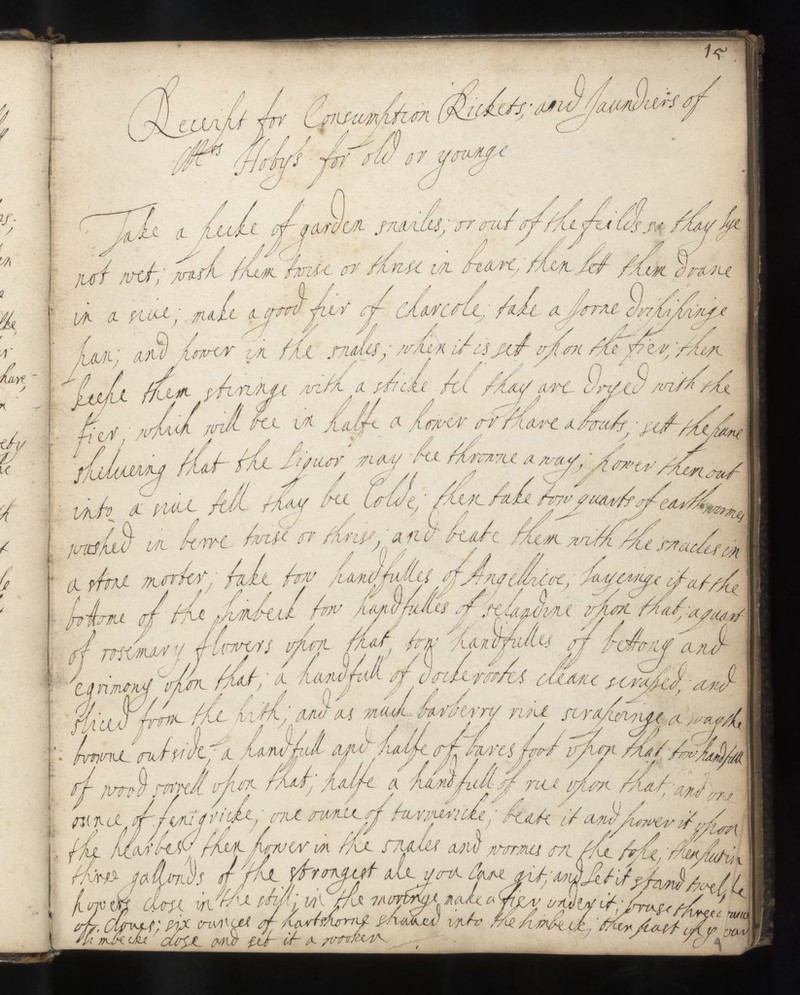 15
Receipt for Consumption Rickets; and Jaundiers of
Mrs Hobys for old or younge
Take a pecke of garden snailes, or out of the feilds so thay lye
not wet, wash them twise or thrise in beare, then lett them drane
in a sive; make a good fier of charcole, take a Jorne dripipinge
pan; and power in the snales; when it is sett upon the fier, then
keepe them stiringe with a sticke tel thay are dryed with the
fier, which will bee in halfe a hower or thare abouts, sett the pane
shelueing that the Liquor may bee throwne away; power them out
into a sive tell thay bee Colde; then take tow quarts of earth wormes
washed in berre twise or thrise, and beate them with the snaeles in
a stone morter, take tow handfulles of Angellicoe, Layeinge it at the
bottome of the Limbeck tow handfulles of selandine upon that, a quart
of rosemary flowers upon that, tow handfulles of bettony and
egrimony upon that; a handfull of dockerootes cleane scraped, and
sliced from the pith; and as much barberry rine scrapeinge away the
browne outside, a handfull and halfe of bares foot upon that tow handfull
of wood sorrell upon that; halfe a handfull of rue upon that, and one
ounce of fenigricke, one ounce of turmericke; beate it and power it upon
the hearbes then power in the snales and wormes on the tope, then put in
three gallonds of the strongest ale you Cane git, and Let it stand twelve
howers close in the still, in the morninge make a fier under it; bruse three ounces
of Cloves; six ounces of hartshorne shaved into the limbecke, then past up y our
limbecke close and set it a wooken